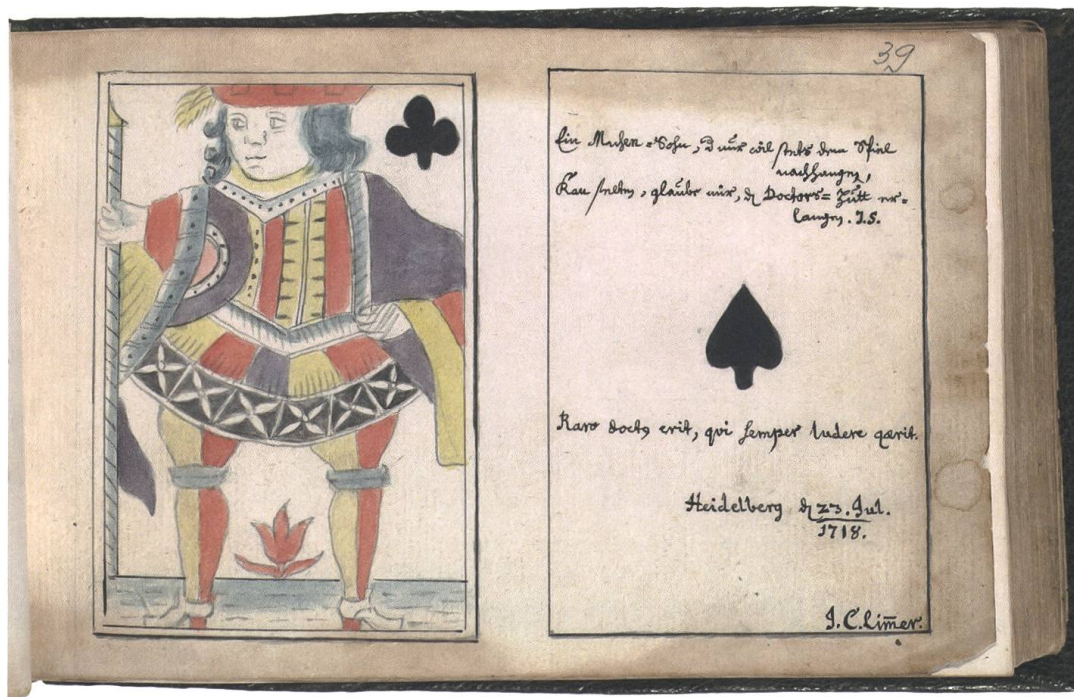 39
Ein Musen=Sohn, d nur wil stets dem Spiel
nachhangen,
Kan selten, glaube mir, dz Doctors=Hütt er=
langen. J.S.
Raro doct9 erit, qvi semper ludere qærit.
Heidelberg dz 23. Jul.
1718.
J. C. Lim̄er.